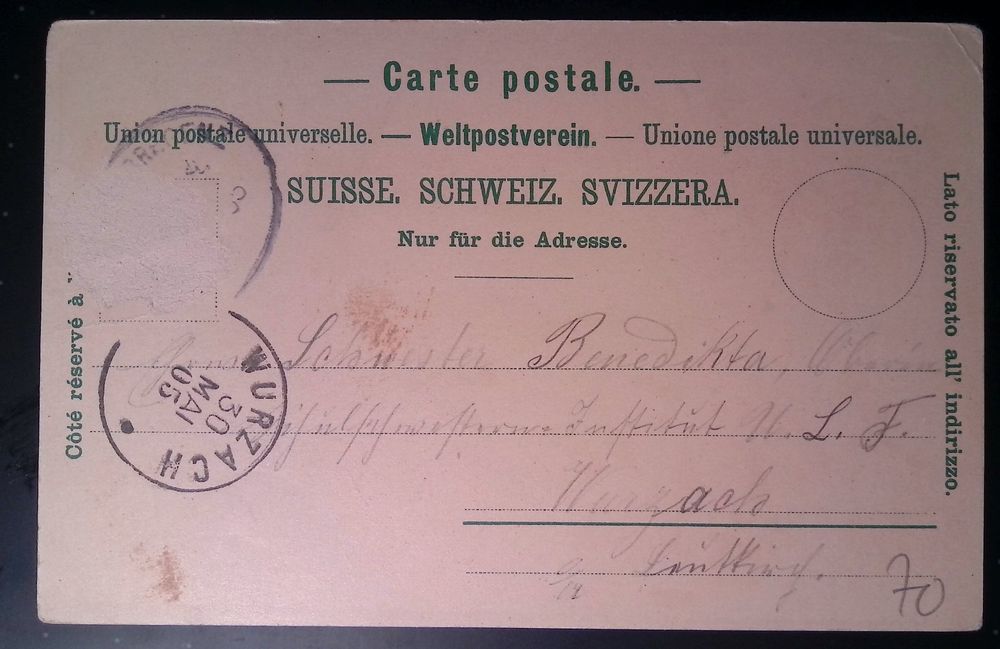 Carte postale.
Union postale universelle. — Weltpostverein. — Unione postale universale.
SUISSE. SCHWEIZ. SVIZZERA.
Nur für die Adresse.
Côté réservé à
Lato riservato all' indirizzo.
WURZACH
30
MAI
05
Schwester Benedikta, Oberin
Schulschwestern-Institut U. L. F.
Wurzach
Leutkirch.
70